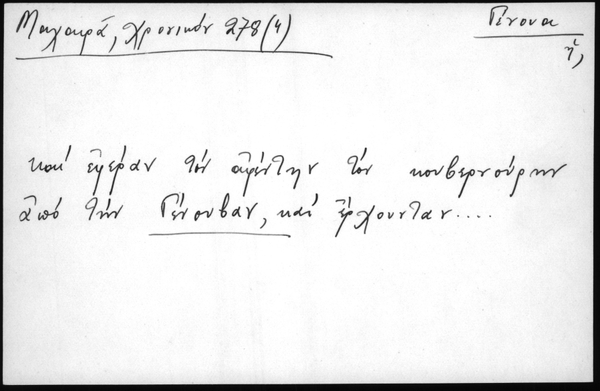 Μαχαιρά, Χρονικόν 278 (4)
Γένουα
ἡ,
καί ἐφέραν τόν ἀφέντην τόν κουβερνούρην
ἀπό τήν Γένουβαν, καί ἔρχουνταν....